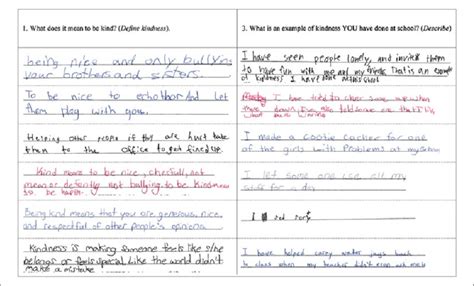 1. What does it mean to be kind? (Define kindness).
being nice and only bullying
your brothers and sisters.
To be nice to echothor And Let
them play with you.
Helping other people if they are hurt take
them to the office to get fixed up.
Kind means to be nice, cherfull, not
mean or defently not bullying to be. Kindness
to be happier
Being kind means that you are generous, nice
and respectful of other people's opinions.
Kindness is making someone feels like she
belongs or feels special even like she didn't
make a mistake
3. What is an example of kindness YOU have done at school!? (Describe)
I have seen people lonely, and invited them
to have fun with me and my friends. That is an example
of kindness I have
I have tried to cheer some up when
I made a cootie cacher for one
of the girls with Problems at my School
I let some one use all my
stuff for a day
I sed sory
I have helped carry water jugs back
to class when my teacher didn't even ask me to